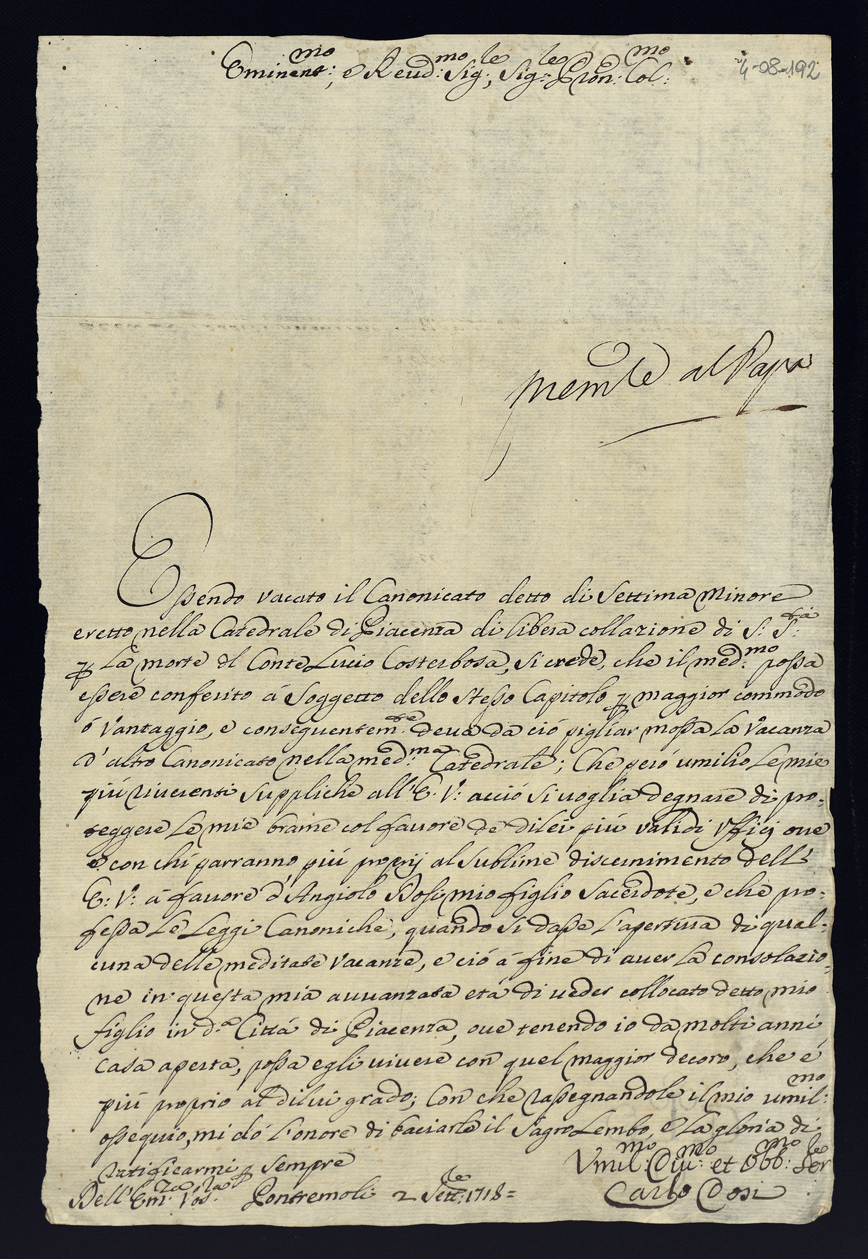 Eminent:mo, e Reud:mo Sig:le, Sig:le Pron: Col:mo
4-08-192
mem:le al Papa
Essendo vacato il Canonicato detto di Settima Minore
eretto nella Catedrale di Piacenza di libera collazione di S: S:tà
p La morte del Conte Lucio Costerbosa, si crede, che il med:mo possa
essere conferito à Soggetto dello stesso Capitolo p maggior commodo
ó vantaggio, e conseguentem:te deva da ció pigliar mossa La Vacanza
d'altro Canonicato nella med:ma Catedrale; Che peró umilio Le mie
piú riverenti Suppliche all'E: V: acció si voglia degnare di pro:
teggere Le mie brame col favore de di lei piú validi Uffici ove
e con chi parranno piú proprij al sublime discernimento dell'
E: V: à favore d'Angiolo Dosi mio figlio Sacerdote, e che pro:
fessa Le Leggi Canoniche, quando si dasse L'apertura di qual:
cuna delle meditate Vacanze, e ció à fine di aver La consolazio:
ne in questa mia avvanzata etá di veder collocato detto mio
figlio in d:a Cittá di Piacenza, ove tenendo io da molti anni
casa aperta, possa egli vivere con quel maggior decoro, che é
piú proprio al di lui grado; Con che rassegnandole il mio umil:mo
ossequio, mi dó L'onore di baciarle il Sagro Lembo, e La gloria di
ratificarmi p sempre
Dell'Em:za Vos:ra Pontremoli 2 Sett:le 1718=
Vmil:mo Diu:mo et Obb:mo Ser:le
Carlo Dosi